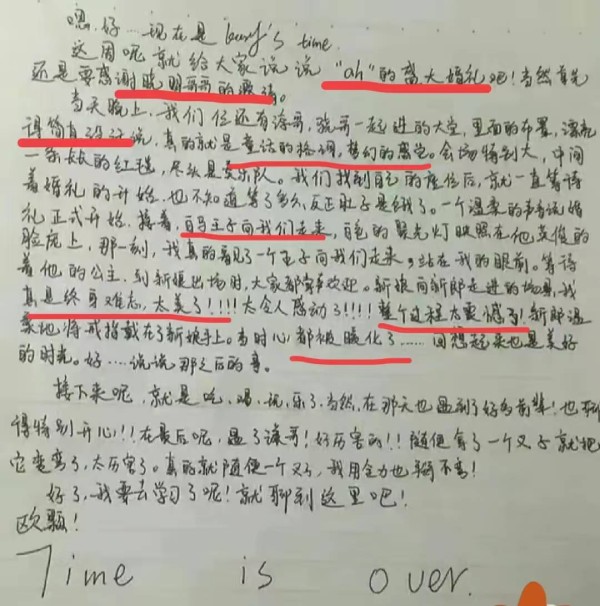 嗯.好……现在是buny's time.
这周呢就给大家说说"ah"的盛大婚礼吧!当然首先
还是要感谢晓明哥哥的邀请。
当天晚上,我们位还有涛哥,骁哥一起进的大堂,里面的布置,漂亮
得简直没法说,真的就是童话的格调,梦幻的感觉.会场特别大,中间
一条长长的红毯,尽头是交乐队。我们找到自己的座位后,就一直等待
着婚礼的开始.也不知道等了多久,反正肚子是饿了。一个温柔的声音说婚
礼正式开始.接着,白马王子向我们走来,白色的聚光灯映照在他英俊的
脸庞上,那一刻,我真的看见了一个王子向我们走来,站在我的眼前。等待
着他的公主.到新娘出场时,大家都掌声欢迎。新娘向新郎走进的场景,我
真是终身难忘,太美了!!!!太令人感动了!!!!整个过程太震憾了!新郎温
柔地将戒指戴在了新娘手上。当时心都被暖化了……回想起来也是美好
的时光。好……说说那之后的事。
接下来呢,就是吃、喝、玩、乐了.当然,在那天也遇到了好多前辈!也聊
得特别开心!!在最后呢,遇了涛哥!好厉害的!!随便拿了一个叉子就把
它变弯了,太厉害了。真的就随便一个叉子,我用全力也掰不弯!
好了,我要去学习了呢!就聊到这里吧!
欧颗!
Time is over.